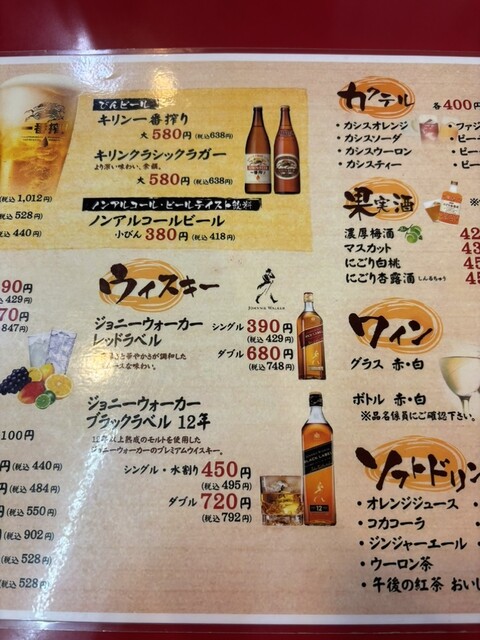 一番搾り
(税込 1,012円)
(税込 528円)
(税込 440円)
90円
税込 429円)
70円
847円)
100円
円(税込 440円)
円(税込 484円)
円(税込 550円)
円(税込 902円)
(税込 528円)
円(税込 528円)
びんビール
キリン一番搾り
大 580円(税込638円)
キリンクラシックラガー
より深い味わい、余韻。
大 580円(税込638円)
ノンアルコール・ビールテイスト飲料
ノンアルコールビール
小びん 380円(税込 418円)
ウィスキー
JOHNNIE WALKER
ジョニーウォーカー
レッドラベル
シングル 390円
(税込 429円)
ダブル 680円
(税込 748円)
さと華やかさが調和した
ースな味わい。
ジョニーウォーカー
ブラックラベル 12年
12年以上熟成のモルトを使用した
ジョニーウォーカーのプレミアムウイスキー。
シングル・水割り 450円
(税込 495円)
ダブル 720円
(税込 792円)
BLACK LABEL
12
カクテル
各400円
・カシスオレンジ
・カシスソーダ
・カシスウーロン
・カシスティー
・ファジ
・ピー
・ピー
・ピー
果実酒
濃厚梅酒
マスカット
にごり白桃
にごり杏露酒 しんるちゅう
42
43
45
45
ワイン
グラス 赤・白
ボトル 赤・白
※品名係員にご確認下さい。
ソフトドリン
・オレンジジュース
・コカコーラ
・ジンジャーエール
・ウーロン茶
・午後の紅茶 おいし